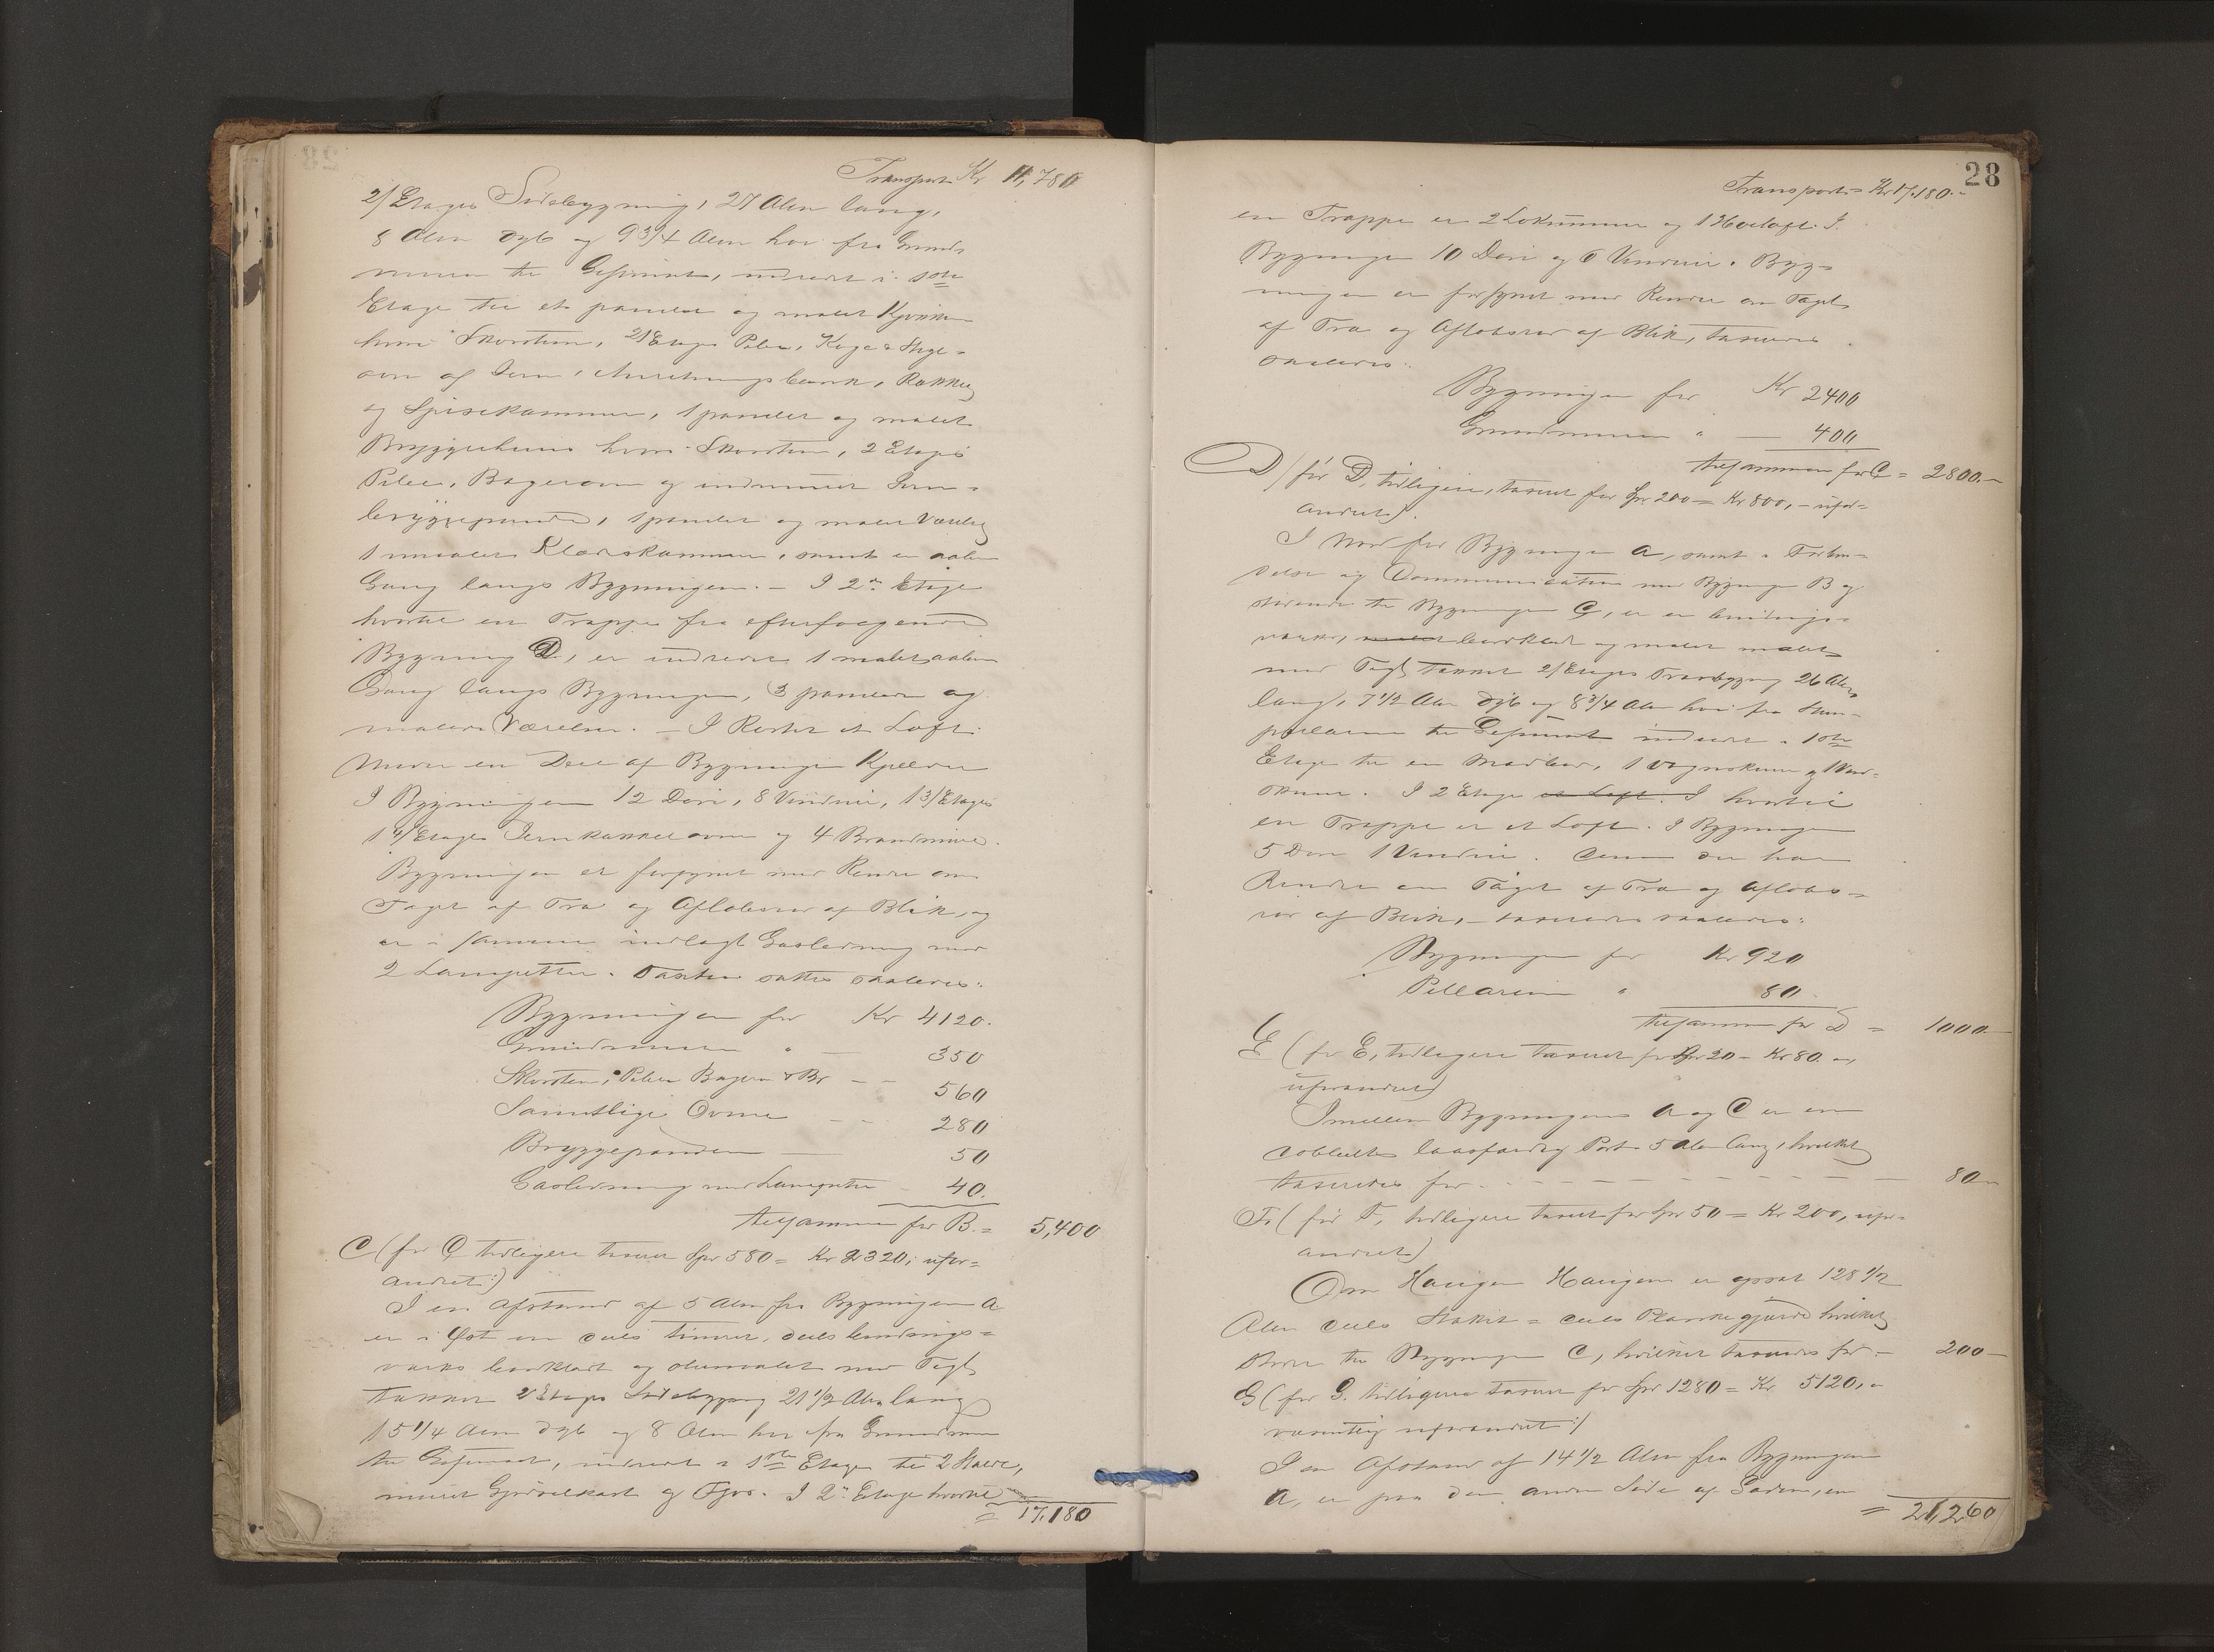 Transport Kr 11,780
2/Etages Sidebygning, 27 Alen lang,
8 Alen dyb og 9 3/4 Alen høi fra Grund-
muren til Gesimsen, indredet i 1ste
Etage til et panelet og malet Kjøkken
hvori Skorsten, 2/Etages Piber, Koge & Stege-
ovn af Jern, Anretningsbænk, Rækker
og Spisekammer, 1 panelet og malet
Bryggerhuus hvori Skorsten, 2 Etages
Piber, Bagerovn og indmuret Jern-
bryggepande, 1 panelet og malet Værelse
1 umalet Klædeskammer, samt en aaben
Gang langs Bygningen. – I 2den Etage
hvortil en Trappe fra efterfølgende
Bygning D, er indredet 1 malet aaben
Gang langs Bygningen, 3 panelede og
malede Værelser. – I Røstet et Loft.
Under en Deel af Bygningen Kjelder
I Bygningen 12 Døre, 8 Vinduer, 1 3/Etages
1 4/Etages Jernkakkelovne og 4 Brandmure.
Bygningen er forsynet med Render om
Taget af Træ og Afløbsrør af Blik, og
er i samme indlagt Gasledning med
2 Lampetter. Taxten sattes saaledes:
Bygningen for Kr 4120.
Grundmuren " — 350
Skorsten, Piber Bagerov & Br — 560
Samtlige Ovne — 280
Bryggepanden — 50
Gasledning med Lampetter – 40.
tilsammen for B. = 5,400
C (før C tidligere taxeret Spr 580 = Kr 2320, ufor-
andret:)
I en Afstand af 5 Alen fra Bygningen A
er i Øst en deels tømret, deels bindings-
værks bordklædt og malet med Tegl
tækket 2 Etages Sidebygning 21 1/2 Alen lang
15 1/4 Alen dyb og 8 Alen høi fra Grundmuren
til Gesimsen, indredet i 1ste Etage til 2 Stalde,
muret Gjødselkast og Fjøs. I 2den Etage hvortil
= 17,180
28
Transport = Kr 17,180.-
en Trappe er 2 Lokummer og 1 Høeloft. I
Bygningen 10 Døre og 6 Vinduer. Byg-
ningen er forsynet med Render om Taget
af Træ og Afløbsrør af Blik, taxeredes
saaledes:
Bygningen for Kr 2400
Grundmuren " — 400
tilsammen for C = 2800.-
D/ før D, tidligere, taxeret for Spr. 200 = Kr 800, – ufor-
andret).
I Nord for Bygningen A, samt i Forbin-
delse og Communication med Bygningen B og
stødende til Bygningen C, er en bindings-
værks, malet bordklædt og malet malet
med Tegl tækket 2/Etages Træbygning 26 Alen
lang, 7 1/2 Alen dyb og 8 3/4 Alen høi fra Steen-
pillarene til Gesimsen indredet i 1ste
Etage til en Madbod, 1 Vognskuur og 1 Ved-
skuur. I 2 Etage et Loft. I hvortil
en Trappe er et Loft. I Bygningen
5 Døre 1 Vindue. Denne der har
Render om Taget af Træ og Afløbs-
rør af Blik, – taxeredes saaledes:
Bygningen for Kr 920
Pillarene " 80
tilsammen for D = 1000.-
E (før E, tidligere taxeret for Spr 20 = Kr 80. –,
uforandret)
Imellem Bygningerne A og C er en
dobbelt laasfærdig Port 5 Alen lang, hvilket
taxeredes for - - - 80.-
F (før F, tidligere taxeret for Spr 50 = Kr 200, ufor-
andret)
Om Haugen Haugen er opsat 128 1/2
Alen deels Stakit = deels Plankegjærde hvilket
støder til Bygningen C, hvilket taxeredes for – 200-
G (før G. tidligere taxeret for Spr 1280 = Kr 5120, -
væsentlig uforandret:)
I en Afstand af 14 1/2 Alen fra Bygningen
A, er paa den anden Side af Gaden, en
= 21,260